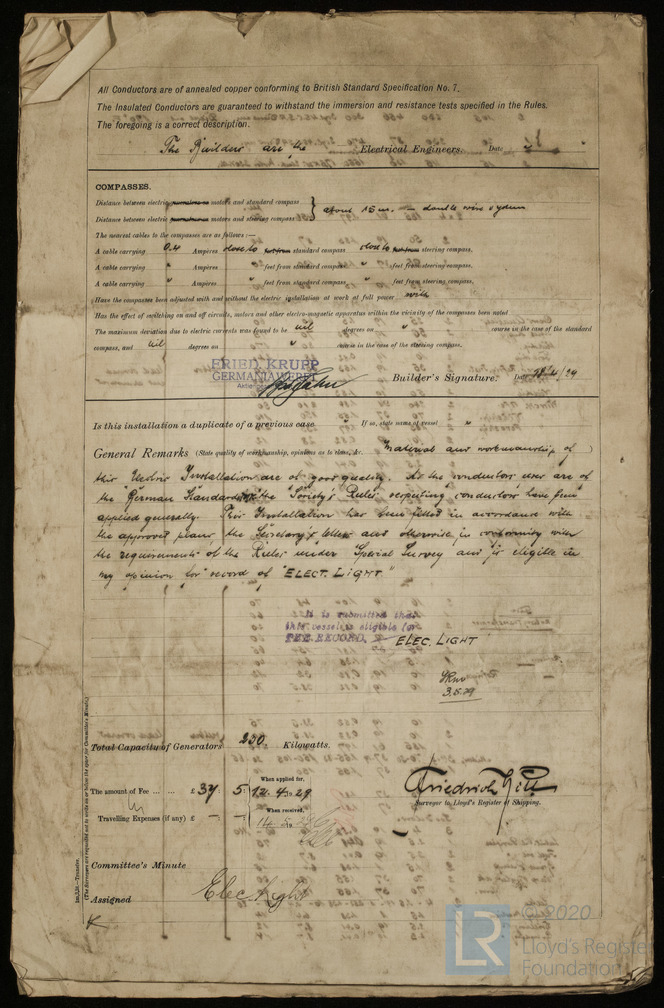 All Conductors are of annealed copper conforming to British Standard Specification No. 7.
The Insulated Conductors are guaranteed to withstand the immersion and resistance tests specified in the Rules.
The foregoing is a correct description.
The Builders are the Electrical Engineers. Date
COMPASSES.
Distance between electric motors and standard compass
Distance between electric motors and steering compass
about 15 m. - double wire system
The nearest cables to the compasses are as follows:—
A cable carrying 0.4 Ampères close to standard compass close to steering compass.
A cable carrying " Ampères " feet from standard compass " feet from steering compass.
A cable carrying " Ampères " feet from standard compass " feet from steering compass.
Have the compasses been adjusted with and without the electric installation at work at full power with
Has the effect of switching on and off circuits, motors and other electro-magnetic apparatus within the vicinity of the compasses been noted
The maximum deviation due to electric currents was found to be nil degrees on " course in the case of the standard
compass, and nil degrees on " course in the case of the steering compass.
FRIED. KRUPP
GERMANIAWERFT
Builder's Signature. Date
Is this installation a duplicate of a previous case " If so, state name of vessel "
General Remarks (State quality of workmanship, opinions as to class, &c. Material and workmanship of )
this Electric Installation are of good quality. As the conductors used are of
the German Standard the "Society's Rules" respecting conductors have been
applied generally. This Installation has been fitted in accordance with
the approved plans, the Secretary's letters and otherwise in conformity with
the requirements of the Rules under Special Survey and is eligible in
my opinion for record of "ELECT. LIGHT"
It is submitted that
this vessel is eligible for
THE RECORD. ELEC. LIGHT
3.5.29
Total Capacity of Generators 230 Kilowatts.
The amount of Fee ... ... £ 37 : 5 :
When applied for,
12.4.29
Travelling Expenses (if any) £ — : — :
When received,
Friedrich
Surveyor to Lloyd's Register of Shipping.
Committee's Minute
Assigned Elec Light
(The Surveyors are requested not to write on or below the space for Committee's Minute.)
© 2020
LR
Lloyd's Register
Foundation